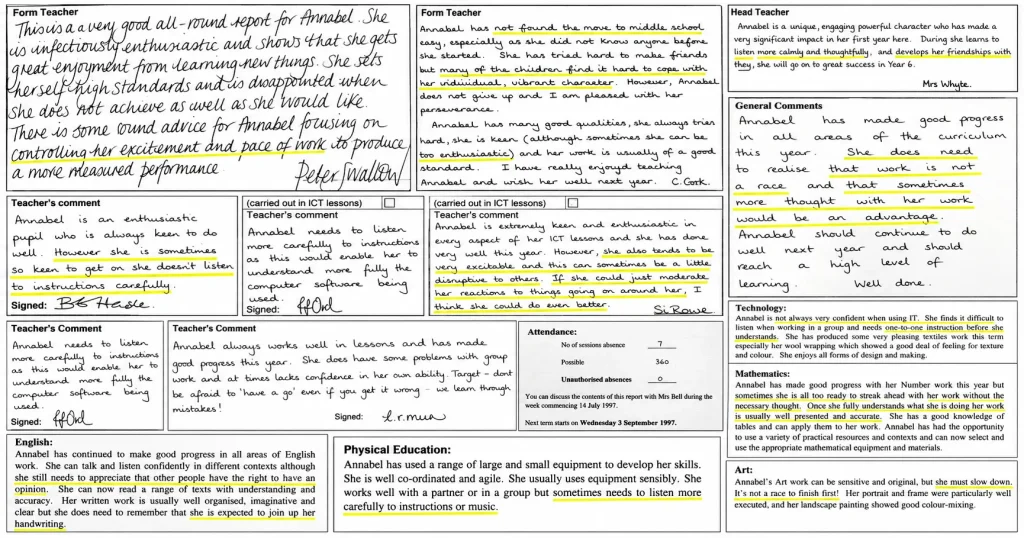 Form Teacher
This is a a very good all-round report for Annabel. She
is infectiously enthusiastic and shows that she gets
great enjoyment from learning new things. She sets
herself high standards and is disappointed when
she does not achieve as well as she would like.
There is some sound advice for Annabel focusing on
controlling her excitement and pace of work to produce
a more measured performance.
Peter Swallow
Form Teacher
Annabel has not found the move to middle school
easy, especially as she did not know anyone before
she started. She has tried hard to make friends
but many of the children find it hard to cope with
her individual, vibrant character. However, Annabel
does not give up and I am pleased with her
perseverance.
Annabel has many good qualities, she always tries
hard, she is keen (although sometimes she can be
too enthusiastic) and her work is usually of a good
standard. I have really enjoyd teaching
Annabel and wish her well next year. C. Gork.
Head Teacher
Annabel is a unique, engaging powerful character who has made a
very significant impact in her first year here. During she learns to
listen more calmly and thoughtfully, and develops her friendships with
they, she will go on to great success in Year 6.
Mrs Whyte.
General Comments
Annabel has made good progress
in all areas of the curriculum
this year. She does need
to realise that work is not
a race and that sometimes
more thought with her work
would be an advantage.
Annabel should continue to do
well next year and should
reach a high level of
learning. Well done.
Teacher's comment
Annabel is an enthusiastic
pupil who is always keen to do
well. However she is sometimes
so keen to get on she doesn't listen
to instructions carefully.
Signed:
(carried out in ICT lessons)
Teacher's comment
Annabel needs to listen
more carefully to instructions
as this would enable her to
understand more fully the
computer software being
used.
Signed:
(carried out in ICT lessons)
Teacher's comment
Annabel is extremely keen and enthusiastic in
every aspect of her ICT lessons and she has done
very well this year. However, she also tends to be
very excitable and this can sometimes be a little
disruptive to others. If she could just moderate
her reactions to things going on around her, I
think she could do even better.
Si Rowe
Teacher's Comment
Annabel needs to listen
more carefully to instructions
as this would enable her to
understand more fully the
computer software being
used.
Signed:
Teacher's Comment
Annabel always works well in lessons and has made
good progress this year. She does have some problems with group
work and at times lacks confidence in her own ability. Target - dont
be afraid to 'have a go' even if you get it wrong - we learn through
mistakes!
Signed:
Attendance:
No of sessions absence 7
Possible 360
Unauthorised absences 0
You can discuss the contents of this report with Mrs Bell during the
week commencing 14 July 1997.
Next term starts on Wednesday 3 September 1997.
Technology:
Annabel is not always very confident when using IT. She finds it difficult to
listen when working in a group and needs one-to-one instruction before she
understands. She has produced some very pleasing textiles work this term
especially her wool wrapping which showed a good deal of feeling for texture
and colour. She enjoys all forms of design and making.
Mathematics:
Annabel has made good progress with her Number work this year but
sometimes she is all too ready to streak ahead with her work without the
necessary thought. Once she fully understands what she is doing her work
is usually well presented and accurate. She has a good knowledge of
tables and can apply them to her work. Annabel has had the opportunity
to use a variety of practical resources and contexts and can now select and
use the appropriate mathematical equipment and materials.
English:
Annabel has continued to make good progress in all areas of English
work. She can talk and listen confidently in different contexts although
she still needs to appreciate that other people have the right to have an
opinion. She can now read a range of texts with understanding and
accuracy. Her written work is usually well organised, imaginative and
clear but she does need to remember that she is expected to join up her
handwriting.
Physical Education:
Annabel has used a range of large and small equipment to develop her skills.
She is well co-ordinated and agile. She usually uses equipment sensibly. She
works well with a partner or in a group but sometimes needs to listen more
carefully to instructions or music.
Art:
Annabel's Art work can be sensitive and original, but she must slow down.
It's not a race to finish first! Her portrait and frame were particularly well
executed, and her landscape painting showed good colour-mixing.